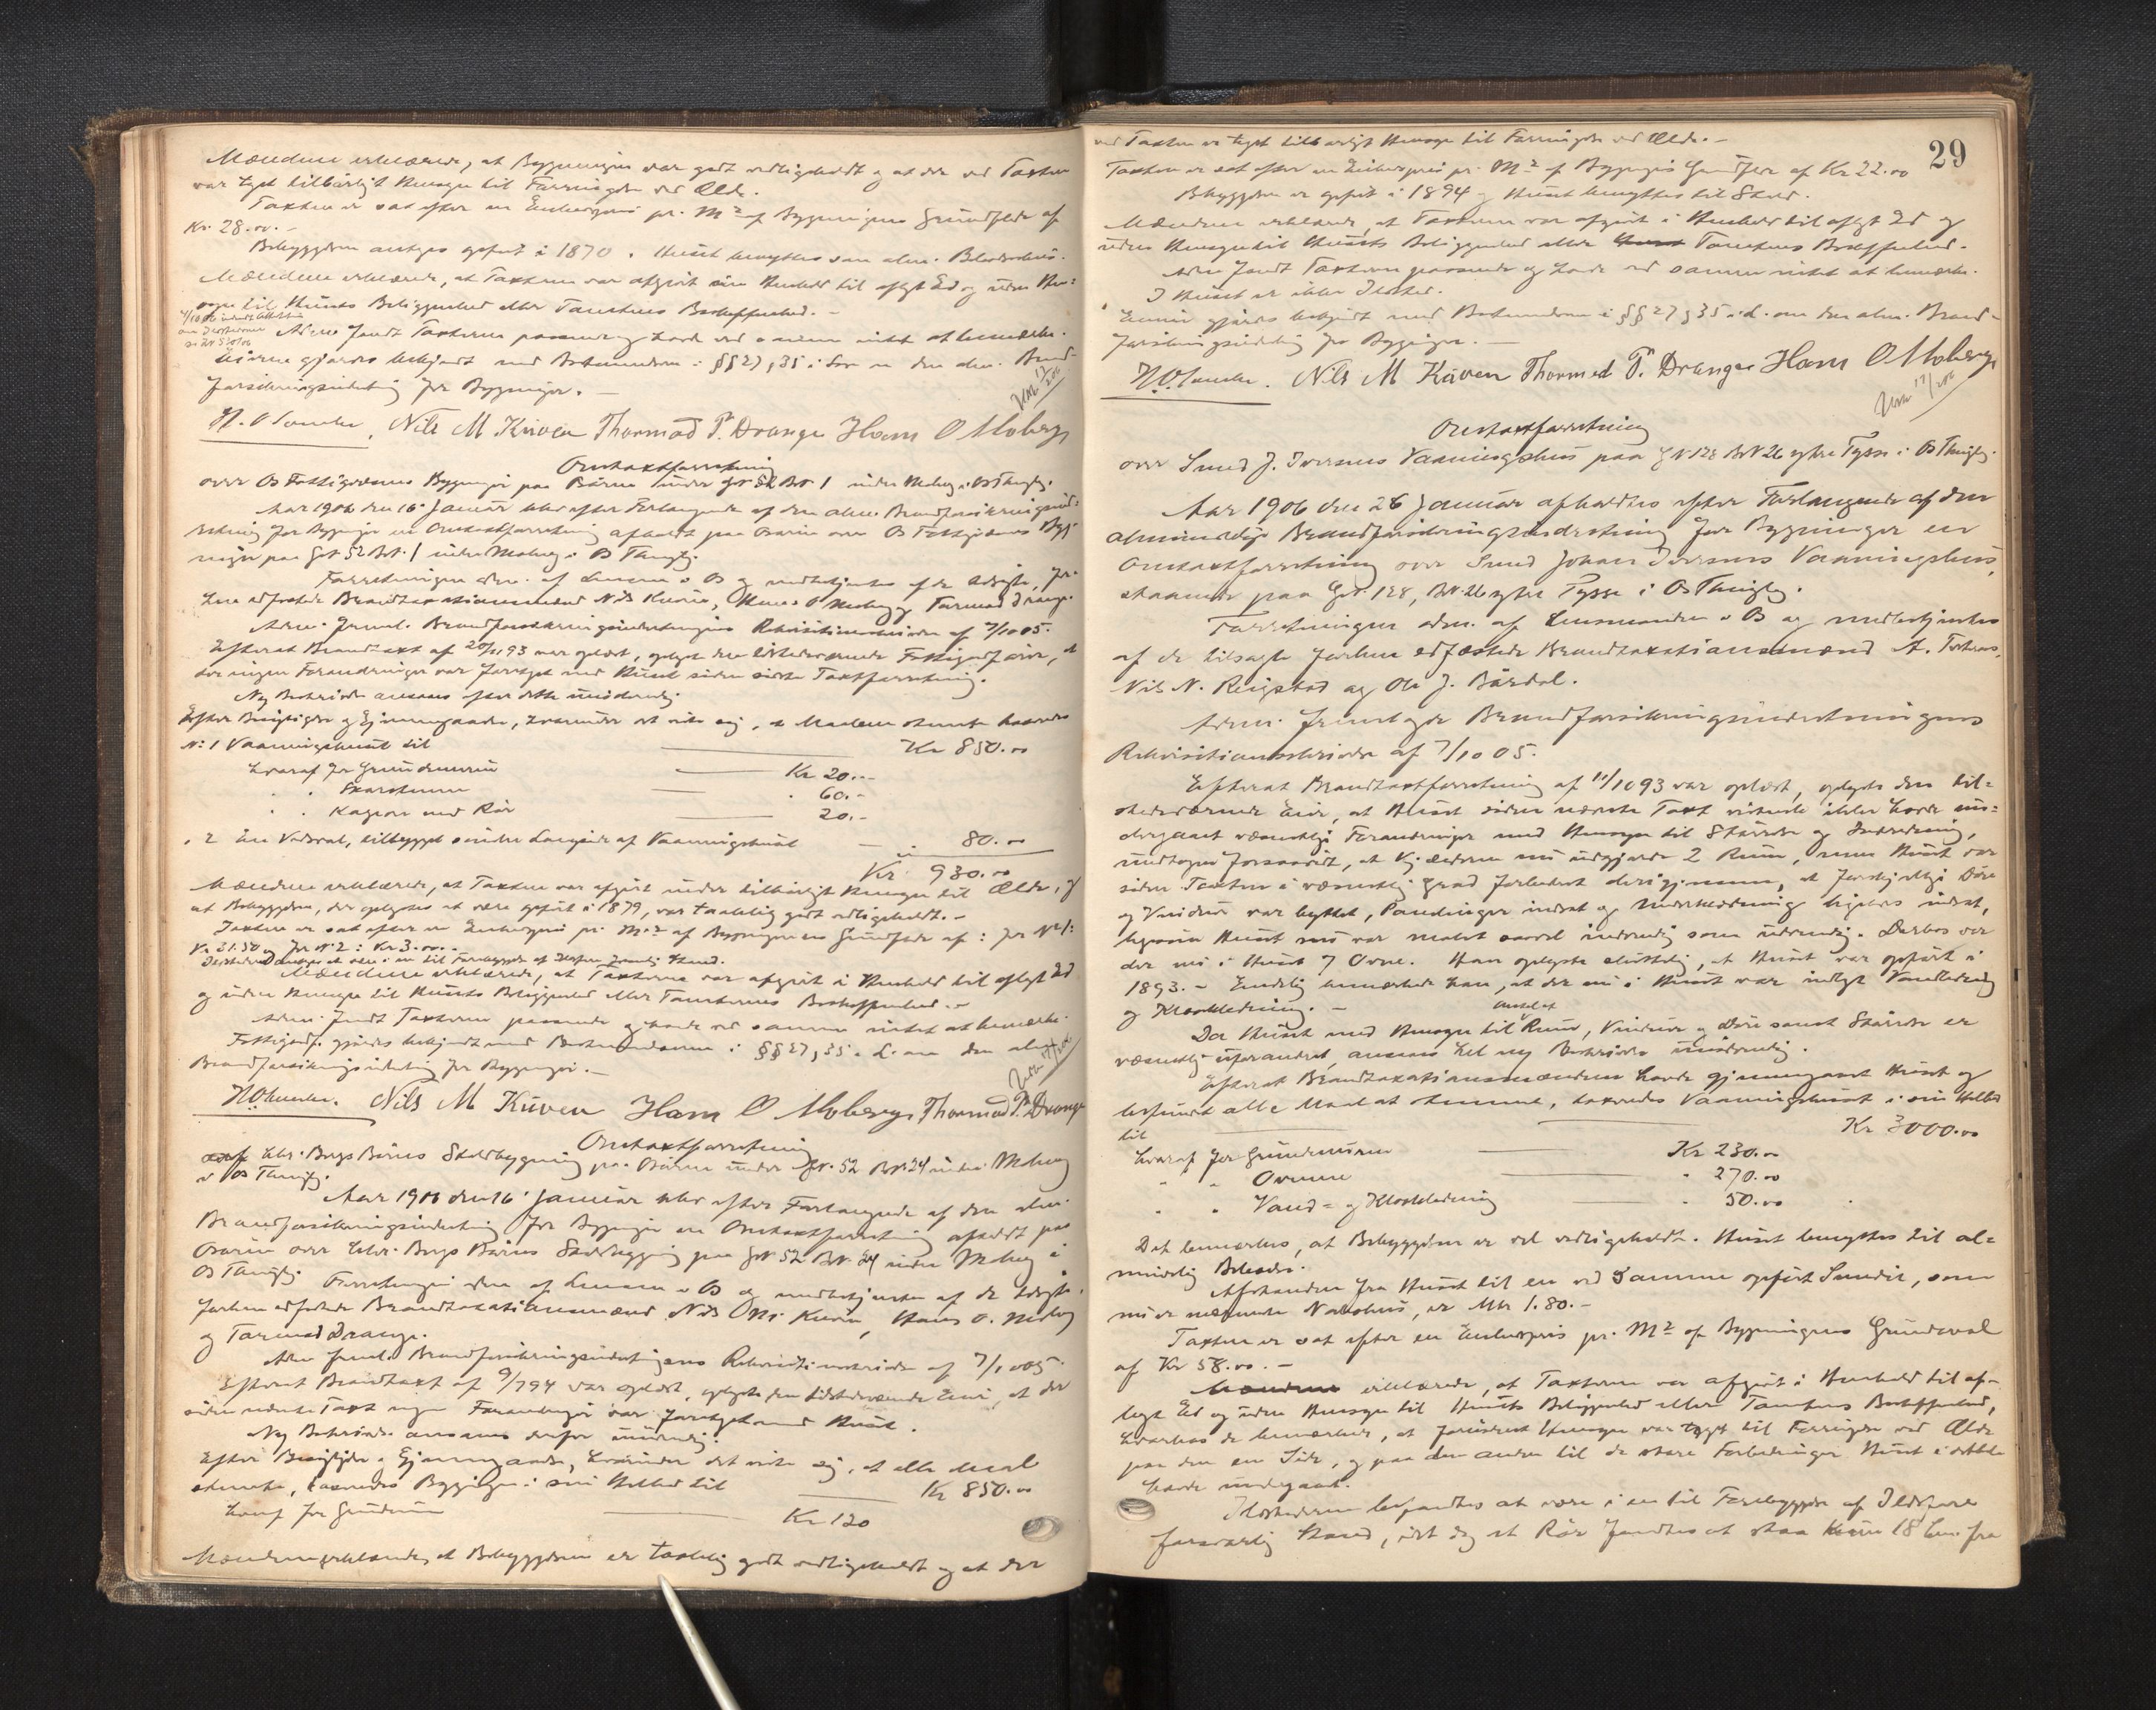 Mændene erklærede, at Bygningen var godt vedligeholdt og at der ved Taxten
var taget tilbørligt Hensyn til Forringelse ved Ælde.
Taxten er sat efter en Enhedspris pr. M² af Bygningens Grundflade af
Kr. 28.00.-
Bebyggelsen antages opført i 1870. Huset benyttes som alm. Beboelseshus.
Mændene erklærede, at Taxten var afgivet i Henhold til aflagt Ed og uden Hen=
syn til Husets Beliggenhed eller Tomtens Beskaffenhed.-
Adm. fandt Taxterne passende og havde ved samme intet at bemærke.
Eieren gjordes bekjendt med Bestemmelserne i §§ 27, 35 i Lov om den alm. Brand-
forsikringsindretning for Bygninger.-
Nils M Kuven Thormod P. Drange Hans O Moberg
Omtaxtforretning
over Os Fattigvæsens Bygninger paa under Gr. 52 Br. 1 indre Moberg i Os Thinglag.
Aar 1906 den 16. Januar blev efter Forlangende af den alm. Brandforsikringsind=
retning for Bygninger en Omtaxtforretning afholdt paa Osøren over Os Fattigvæsens Byg=
ninger paa Gr. 52 Br. 1 indre Moberg i Os Thinglag.
Forretningen adm. af Lensm. i Os og medbetjentes af de tilsagte, for=
hen edfæstede Brandtaxationsmænd Nils Kuven, Hans O Moberg og Tormod Drange.
Adm. freml. Brandforsikringsindretningens Rekvisitionsskrivelse af 7/10 05.
Efterat Brandtaxt af 93 var oplæst, oplyste den tilstedeværende Fattigforst., at
der ingen Forandringer var foretaget med Huset siden sidste Taxtforretning.
Ny Beskrivelse ansaaes efter dette unødvendig.
Efter Besigtigelse og Gjennemgaaelse, hvorunder det viste sig, at Maalene stemte taxeredes
N: 1 Vaaningshuset til Kr 850.00
hvoraf for Grundmuren Kr 20.-
" " Skorstenen " 60.-
" " Kakkelovn med Rør " 20.-
" 2 en Vedsval, tilbygget søndre Langside af Vaaningshuset " 80.00
Kr. 930.00
Mændene erklærede, at Taxten var afgivet under tilbørligt Hensyn til Ælde, og
at Bebyggelsen, der oplystes at være opført i 1879, var taalelig godt vedligeholdt.-
Taxten er sat efter en Enhedspris pr. M² af Bygningernes Grundflade af: for N: 1:
Kr. 21.50 og for N: 2: Kr 3.00.-
Mændene erklærede, at Taxterne var afgivet i Henhold til aflagt Ed
og uden Hensyn til Husets Beliggenhed eller Tomternes Beskaffenhed.-
Adm. fandt Taxterne passende og havde ved samme intet at bemærke.
Fattigforst. gjordes bekjendt med Bestemmelserne i §§ 27, 35 i L. om den alm.
Brandforsikringsindretning for Bygninger.-
Nils M Kuven Hans O Moberg Thormod P. Drange
Omtaxtforretning
over Bygning paa Osøren under Gr. 52 Br. 24 indre Moberg
i Os Thinglag.
Aar 1906 den 16. Januar blev efter Forlangende af den alm.
Brandforsikringsindretning for Bygninger en Omtaxtforretning afholdt paa
Osøren over paa Gr 52 Br. 24 indre Moberg i
Os Thinglag. Forretningen adm. af Lensm. i Os og medbetjentes af de tilsagte,
forhen edfæstede Brandtaxationsmænd Nils M. Kuven, Hans O. Moberg
og Tormod Drange.
Adm. freml. Brandforsikringsindretningens Rekvisitionsskrivelse af 7/10 05.
Efterat Brandtaxt af 9/7 94 var oplæst, oplyste den tilstedeværende Eier, at der
siden nævnte Taxt ingen Forandringer var foretaget med Huset.
Ny Beskrivelse ansaaes derfor unødvendig.
Efter Besigtigelse og Gjennemgaaelse, hvorunder det viste sig, at alle Maal
stemte, taxeredes Bygningen i sin Helhed til Kr 850.00
hvoraf for Grundmur Kr 120
Mændene erklærede, at Bebyggelsen er taalelig godt vedligeholdt og at der
29
ved Taxten er taget tilbørligt Hensyn til Forringelse ved Ælde.-
Taxten er sat efter en Enhedspris pr. M² af Bygningens Grundflade af Kr 22.00
Bebyggelsen er opført i 1894 og Huset benyttes til
Mændene erklærede, at Taxten var afgivet i Henhold til aflagt Ed og
uden Hensyn til Husets Beliggenhed eller Tomtens Beskaffenhed.
Adm. fandt Taxterne passende og havde ved samme intet at bemærke.
I Huset er ikke Ildsted.
Eieren gjordes bekjendt med Bestemmelserne i §§ 27 & 35 i L. om den alm. Brand-
forsikringsindretning for Bygninger.-
Nils M Kuven Thormod P. Drange Hans O Moberg
Omtaxtforretning
over Svend J. Iversens Vaaningshus paa G N 128 B N 26 ytre Tysse i Os Thinglag.
Aar 1906 den 26 Januar afholdtes efter Forlangende af den
almindelige Brandforsikringsindretning for Bygninger en
Omtaxtforretning over Svend Johan Iversens Vaaningshus,
staaende paa Gr. 128, Br. 26 ytre Tysse i Os Thinglag.
Forretningen adm. af Lensmanden i Os og medbetjentes
af de tilsagte forhen edfæstede Brandtaxationsmænd A.
Nils N. Reigstad og Ole J. Bårdal.
Adm. fremlagde Brandforsikringsindretningens
Rekvisitionsskrivelse af 7/10 05.
Efterat Brandtaxtforretning af 11/10 93 var oplæst, oplyste den til=
stedeværende Eier, at Huset siden nævnte Taxt vistnok ikke havde un=
dergaaet væsentlige Forandringer med Hensyn til Størrelse og Indredning,
undtagen forsaavidt, at Kjælderen nu udgjorde 2 Rum, men Huset var
siden Taxten i væsentlig Grad forbedret derigjennem, at forskjellige Døre
og Vinduer var byttet, Paneling indsat og ligeledes indsat,
ligesom Huset nu var malet saavel indvendig som udvendig. Derhos var
der nu i Huset 7 Ovne. Han oplyste sluttelig, at Huset var opført i
1893.- Endelig bemærkede han, at der nu i Huset var indlagt Vandledning
og Kloakledning.-
Da Huset med Hensyn til Antal af Rum, Vinduer og Døre samt Størrelse er
væsentlig uforandret, ansaaes hel ny Beskrivelse unødvendig.
Efterat Brandtaxationsmændene havde gjennemgaaet Huset og
befundet alle Maal at stemme, taxeredes Vaaningshuset i sin Helhed
til Kr 3000.00
hvoraf for Grundmuren Kr 230.00
" " Ovnene " 270.00
" " Vand= og Kloakledning " 50.00
Det bemærkes, at Bebyggelsen er vel vedligeholdt. Huset benyttes til al=
mindelig Beboelse.
Afstanden fra Huset til en ved samme opført Smedie, som
nu er nærmeste Nabohus, er Mtr 1.80.-
Taxten er sat efter en Enhedspris pr. M² af Bygningens Grundareal
af Kr 58.00.-
Mændene erklærede, at Taxten var afgivet i Henhold til af-
lagt Ed og uden Hensyn til Husets Beliggenhed eller Tomtens Beskaffenhed,
hvorhos de bemærkede, at fornødent Hensyn var taget til Forringelse ved Ælde
paa den ene Side, og paa den anden til de store Forbedringer Huset
havde undergaaet.
Ildstederne befandtes at være i en til Forebyggelse af Ildsfare
forsvarlig Stand, idet dog et Rør fandtes at staa kun 18 Cm. fra